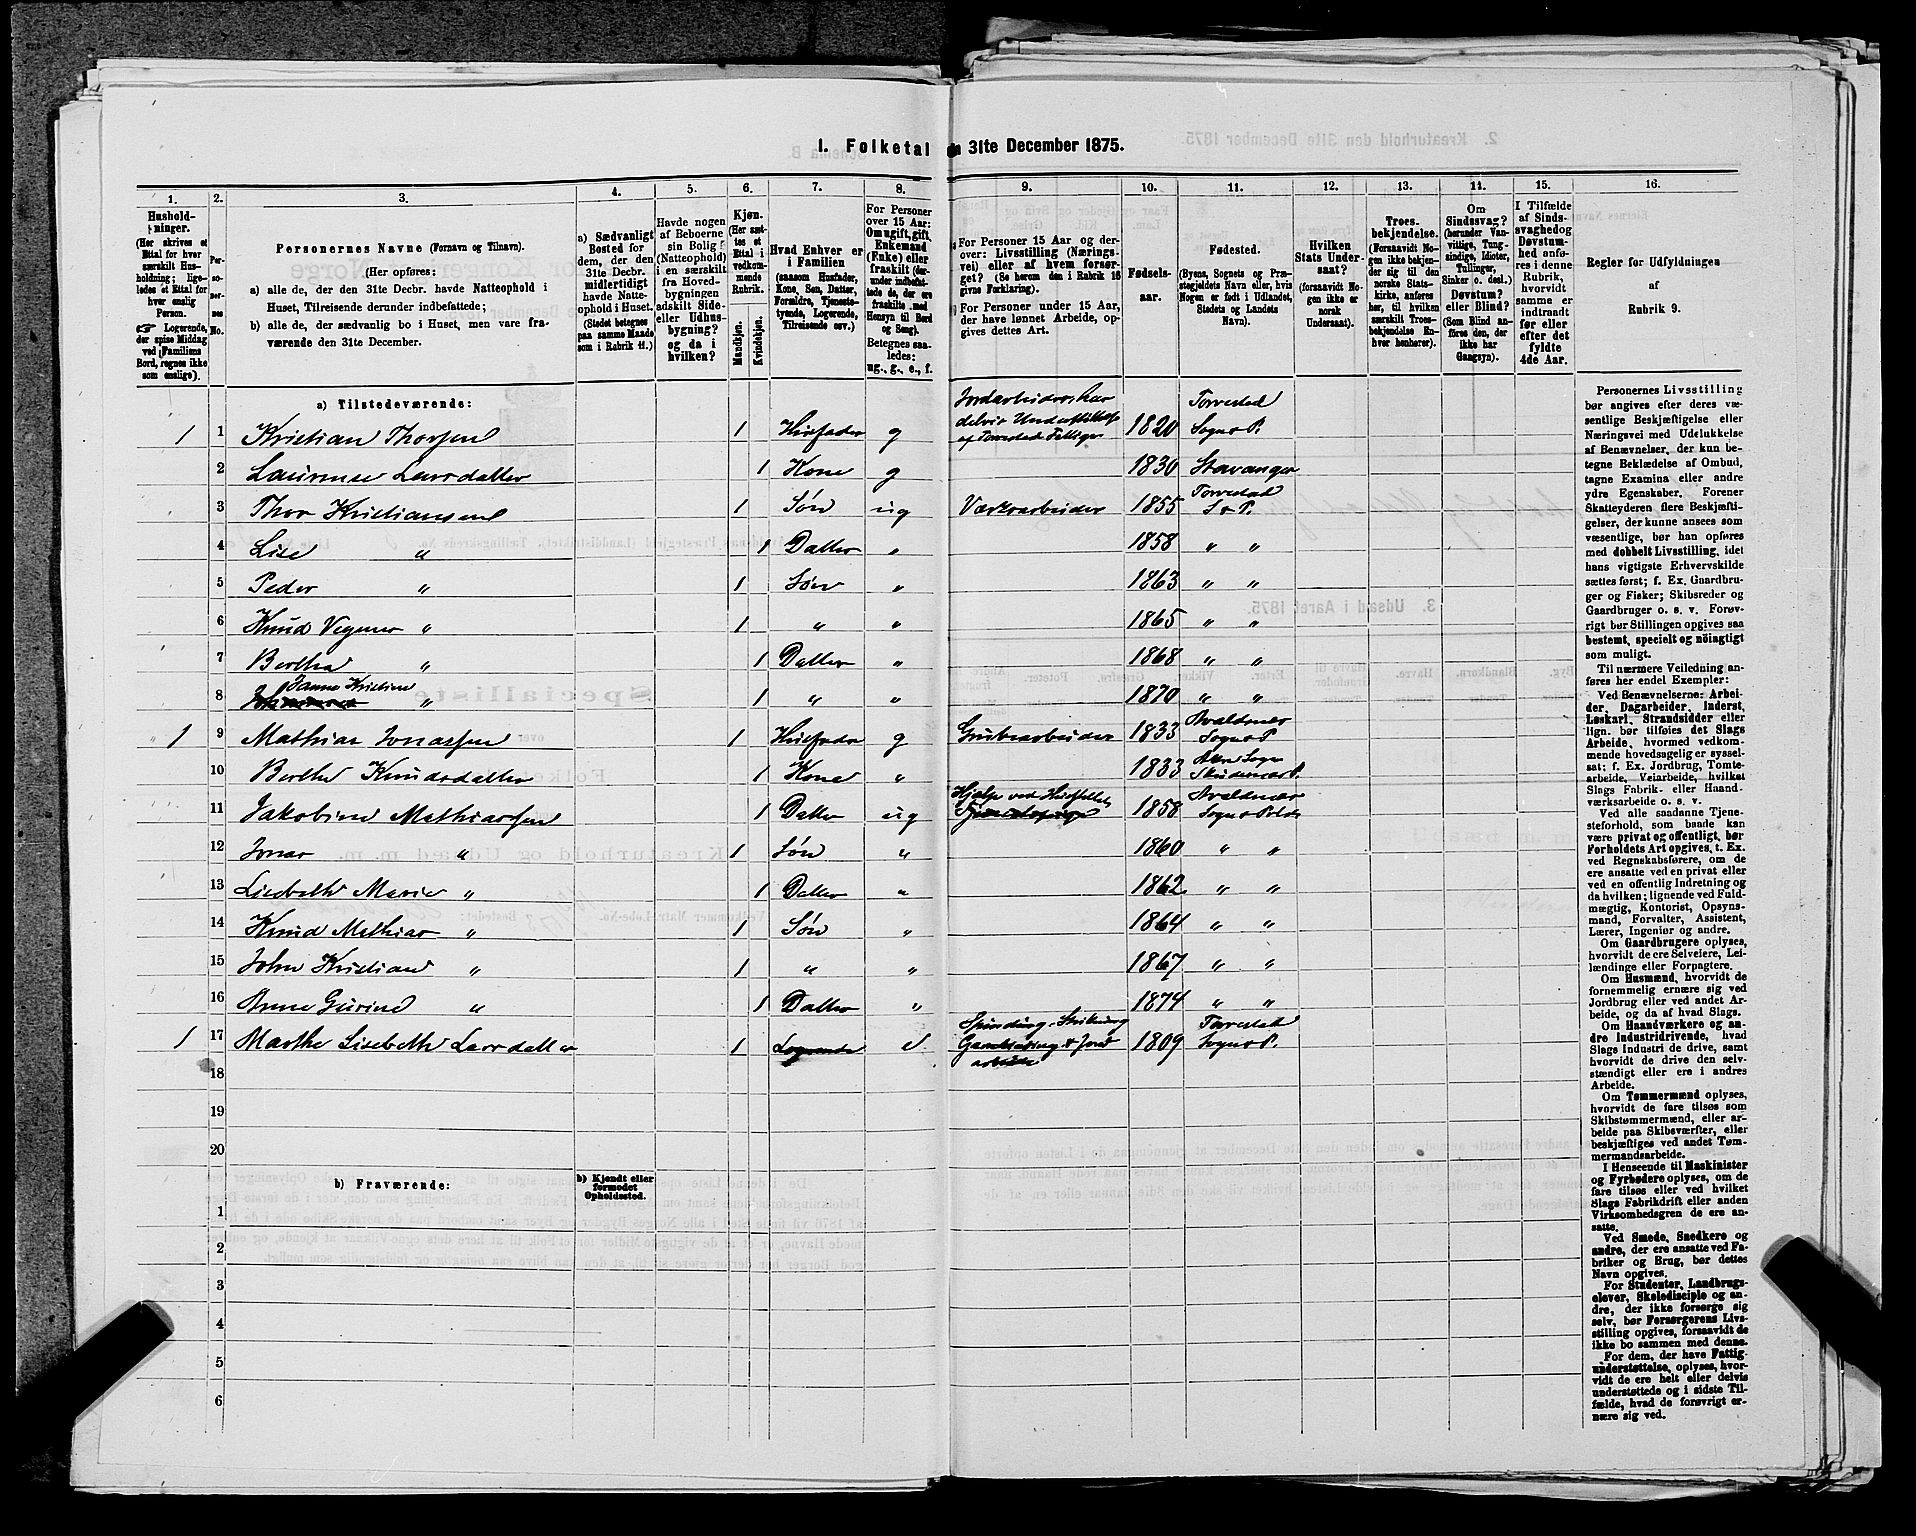 1. Folketal
31te December 1875.
1.
2.
3.
4.
5.
6.
7.
8.
9.
10.
11.
12.
13.
14.
15.
16.
Hushold-
ninger.
(Her skrives et
Ettal for hver
særskilt Hus-
holdning; lige-
ledes et Ettal for
hver enslig
Person.
Logerende,
der spise Middag
ved Familiens
Bord, regnes ikke
som enslige).
Per-
so-
ner-
nes
No.
Personernes Navne (Fornavn og Tilnavn).
(Her opføres:
a) alle de, der den 31te Decbr. havde Natteophold i
Huset, Tilreisende derunder indbefattede;
b) alle de, der sædvanlig bo i Huset, men vare fra-
værende den 31te December.
a) Sædvanligt
Bosted for
dem, der den
31te Decbr.
midlertidigt
havde Natte-
ophold i Huset.
(Stedet betegnes
paa samme Maade
som i Rubrik 11.)
Havde nogen
af Beboerne
sin Bolig
(Natteophold)
i en særskilt
fra Hoved-
bygningen
adskilt Side-
eller Udhus-
bygning?
og da i
hvilken?
Kjøn.
(Her sæt-
tes et
Ettal i
vedkom-
mende
Rubrik.
Mandkjøn.
Kvindekjøn.
Hvad Enhver er
i Familien
(saasom Husfader,
Kone, Søn, Datter,
Forældre, Tjeneste-
tyende, Logerende,
Tilreisende osv.)
For Personer
over 15 Aar:
Om ugift, gift,
Enkemand
(Enke) eller
fraskilt (der-
under indbefat-
tede de, der ere
fraskilte med
Hensyn til Bord
og Seng).
Betegnes saa-
ledes:
ug., g., e., f.
For Personer 15 Aar og der-
over: Livsstilling (Nærings-
vei) eller af hvem forsør-
get? (Se herom den i Rubrik 16
givne Forklaring).
For Personer under 15 Aar,
der have lønnet Arbeide, op-
gives dettes Art.
Fødsels-
aar.
Fødested.
(Byens, Sognets og Præ-
stegjeldets Navn eller, hvis
Nogen er født i Udlandet,
Stedets og Landets
Navn).
Hvilken
Stats Under-
saat?
(forsaavidt No-
gen ikke er
norsk
Undersaat).
Troes-
bekjendelse.
(Forsaavidt No-
gen ikke bekjen-
der sig til den
norske Stats-
kirke, anføres
her, til hvilken
særskilt Troes-
bekjendelse En-
hver henhører).
Om
Sindssvag?
(herunder Van-
vittige, Tung-
sindige, Idioter,
Tullinger,
Sinker o. desl.)
Døvstum?
eller Blind?
(Som Blind an-
føres den, der
ikke har
Gangsyn).
I Tilfælde
af Sinds-
svaghed og
Døvstum-
hed anfø-
res i denne
Rubrik,
hvorvidt
samme er
indtraadt
før eller
efter det
fyldte
4de Aar.
Regler for Udfyldningen
af
Rubrik 9.
a) Tilstedeværende:
1 1 Kristian Thorsen 1 Husfader g Jordarbeider, har delvis Understøttelse 1820 Torvestad Sogn & P.
2 Laurense Larsdatter 1 Kone g 1830 Stavanger
3 Thor Kristiansen 1 Søn ug Værksarbeider 1855 Torvestad S & P.
4 Lise " 1 Datter " 1858 " "
5 Peder " 1 Søn " 1863 " "
6 Knud Vegner " 1 " " 1865 " "
7 Bertha " 1 Datter " 1868 " "
8 Janna Kristine " 1 " " 1870 " "
1 9 Mathias Jonassen 1 Husfader g Grubearbeider 1833 Avaldsnæs Sogn & P
10 Berthe Knudsdatter 1 Kone " 1833 Sogn Skudenæs P.
11 Jakobine Mathiassen 1 Datter ug Hjelp ved Husstellet 1858 Avaldsnæs Sogn &
12 Jonas " 1 Søn " 1860 " "
13 Lisebeth Marie " 1 Datter " 1862 " "
14 Knud Mathias " 1 Søn " 1864 " "
15 John Kristian " 1 " " 1867 " "
16 Anne Gurine " 1 Datter " 1874 " "
1 17 Marthe Lisebeth Larsdatter 1 Logerende Spinding, Strikning & Jord arbeide 1809 Torvestad Sogn & P.
18
19
20
b) Fraværende:
b) Kjendt eller
formodet
Opholdssted.
1
2
3
4
5
6
Personernes Livsstilling
bør angives efter deres væ-
sentlige Beskjæftigelse eller
Næringsvei med Udelukkelse
af Benævnelser, der kun be-
tegne Beklædelse af Ombud,
tagne Examina eller andre
ydre Egenskaber. Forener
Skatteyderen flere Beskjæfti-
gelser, der kunne ansees som
væsentlige, bør han opføres
med dobbelt Livsstilling, idet
hans vigtigste Erhvervskilde
sættes først; f. Ex. Gaardbru-
ger og Fisker; Skibsreder og
Gaardbruger o. s. v. Forøv-
rigt bør Stillingen opgives saa
bestemt, specielt og nöiagtigt
som muligt.
Til nærmere Veiledning an-
føres her endel Exempler:
Ved Benævnelserne: Arbei-
der, Dagarbeider, Inderst,
Løskarl, Strandsidder eller
lign. bør tilføies det Slags
Arbeide, hvormed vedkom-
mende hovedsagelig er syssel-
sat; f. Ex. Jordbrug, Tomte-
arbeide, Veiarbeide, hvilket
Slags Fabrik- eller Haand-
værksarbeide o. s. v.
Ved alle saadanne Tjene-
steforhold, som baade kan
være privat og offentligt, bør
Forholdets Art opgives, t. Ex.
ved Regnskabsførere, om de
ere ansatte ved en privat eller
ved en offentlig Indretning og
da hvilken; lignende ved Fuld-
mægtig, Kontorist, Opsyns-
mand, Forvalter, Assistent,
Lærer, Ingeniør og andre.
Om Gaardbrugere oplyses,
hvorvidt de ere Selveiere, Lei-
lændinge eller Forpagtere.
Om Husmænd, hvorvidt de
fornemmelig ernære sig ved
Jordbrug eller ved andet Ar-
beide, og da af hvad Slags.
Om Haandværkere og an-
dre Industridrivende, hvad
Slags Industri de drive, samt
hvorvidt de drive den selv-
stændigt eller ere i andres
Arbeide.
Om Tømmermænd oplyses,
hvorvidt de fare tilsøs som
Skibstømmermænd, eller ar-
beide paa Skibsværfter, eller
beskjæftiges ved andet Tøm-
mermandsarbeide.
I Henseende til Maskinister
og Fyrbødere oplyses, om de
fare tilsøs eller ved hvilket
Slags Fabrikdrift eller anden
Virksomhedsgren de ere an-
satte.
Ved Smede, Snedkere og
andre, der ere ansatte ved Fa-
briker og Brug, bør dettes
Navn opgives.
For Studenter, Landbrugs-
elever, Skoledisciple og an-
dre, der ikke forsørge sig
selv, bør Forsørgerens Livs-
stilling opgives, forsaavidt de
ikke bo sammen med denne.
For dem, der have Fattig-
understøttelse, oplyses, hvor-
vidt de ere helt eller delvis
understøttede og i sidste Til-
fælde, hvad de forøvrigt er-
nære sig ved.